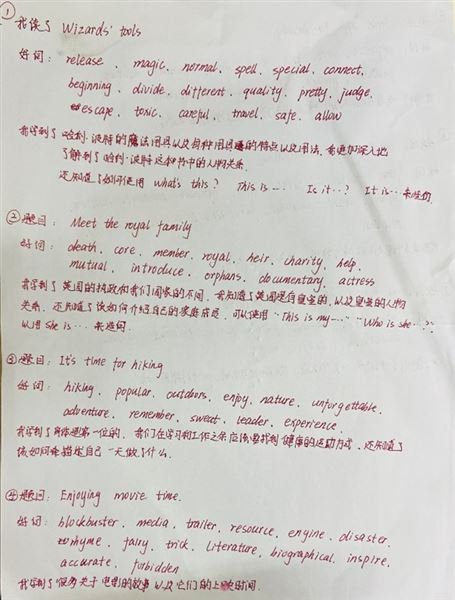 ① 我读了 Wizards' tools
好词: release、magic、normal、spell、special、connect、
beginning、divide、different、quality、pretty、judge、
escape、toxic、careful、travel、safe、allow
我学到了哈利·波特的魔法用具以及每种用具的特点以及用法,
了解到了哈利·波特这本书中的人物关系.
还知道了如何使用 What's this? This is… Is it…? It is…来造句
②题目: Meet the royal family
好词: death、core、member、royal、heir、charity、help、
mutual、introduce、orphans、documentary、actress
我学到了英国的执政和我们国家的不同,我知道了英国是有皇室的,以及皇室的人物
关系,还知道了该如何介绍自己的家庭成员,可以使用"This is my…" "Who is she…?"
以用 She is … 来造句.
③题目: It's time for hiking
好词: hiking、popular、outdoors、enjoy、nature、unforgettable、
adventure、remember、sweat、leader、experience、
我学到了身体是第一位的,我们在学习和工作之余应该要找到健康的运动方式,还知道了
该如何来描述自己一天做了什么.
④题目: Enjoying movie time.
好词: blockbuster、media、trailer、resource、engine、disaster、
rhyme、fairy、trick、literature、biographical、inspire、
accurate、forbidden
我学到了很多关于电影的故事以及它们的上映时间.